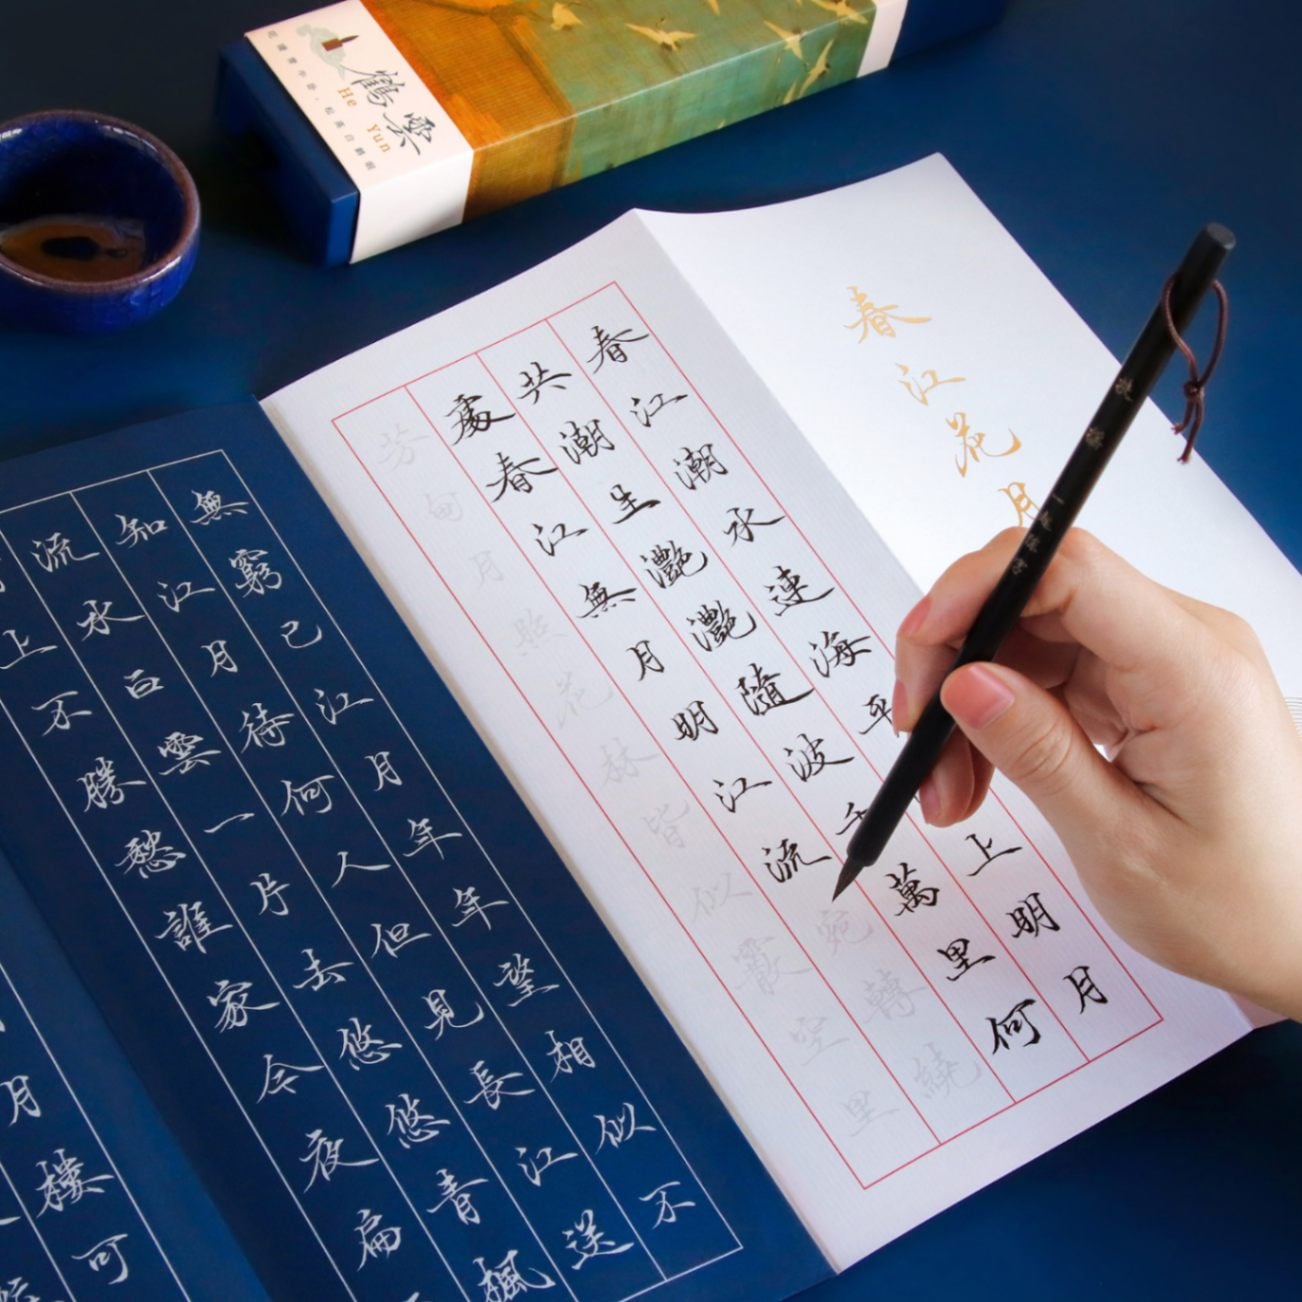 鶴雲
He Yun
春江花月
春江潮水連海平上明月
共潮生灩灩隨波千萬里何
處春江無月明江流宛轉繞
芳甸月照花林皆似霰空里
無窮已江月年年望相似不
知江月待何人但見長江送
流水白雲一片去悠悠青楓
上不勝愁誰家今夜扁
月樓可